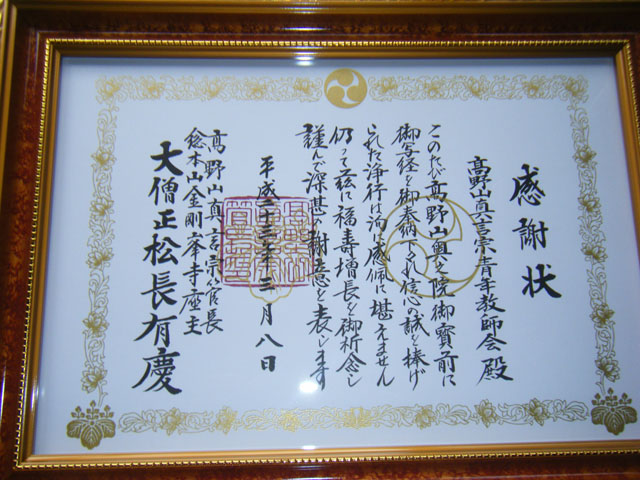 感謝状
高野山真言宗青年教師会 殿
このたび高野山奥之院御寳前に
御写経を御奉納下され信心の誠を捧げ
られた浄行は洵に感佩に堪えません
仍って茲に福寿増長を御祈念し
謹んで深甚の謝意を表します
平成二十三年三月八日
高野山真言宗管長
総本山金剛峯寺座主
大僧正松長有慶